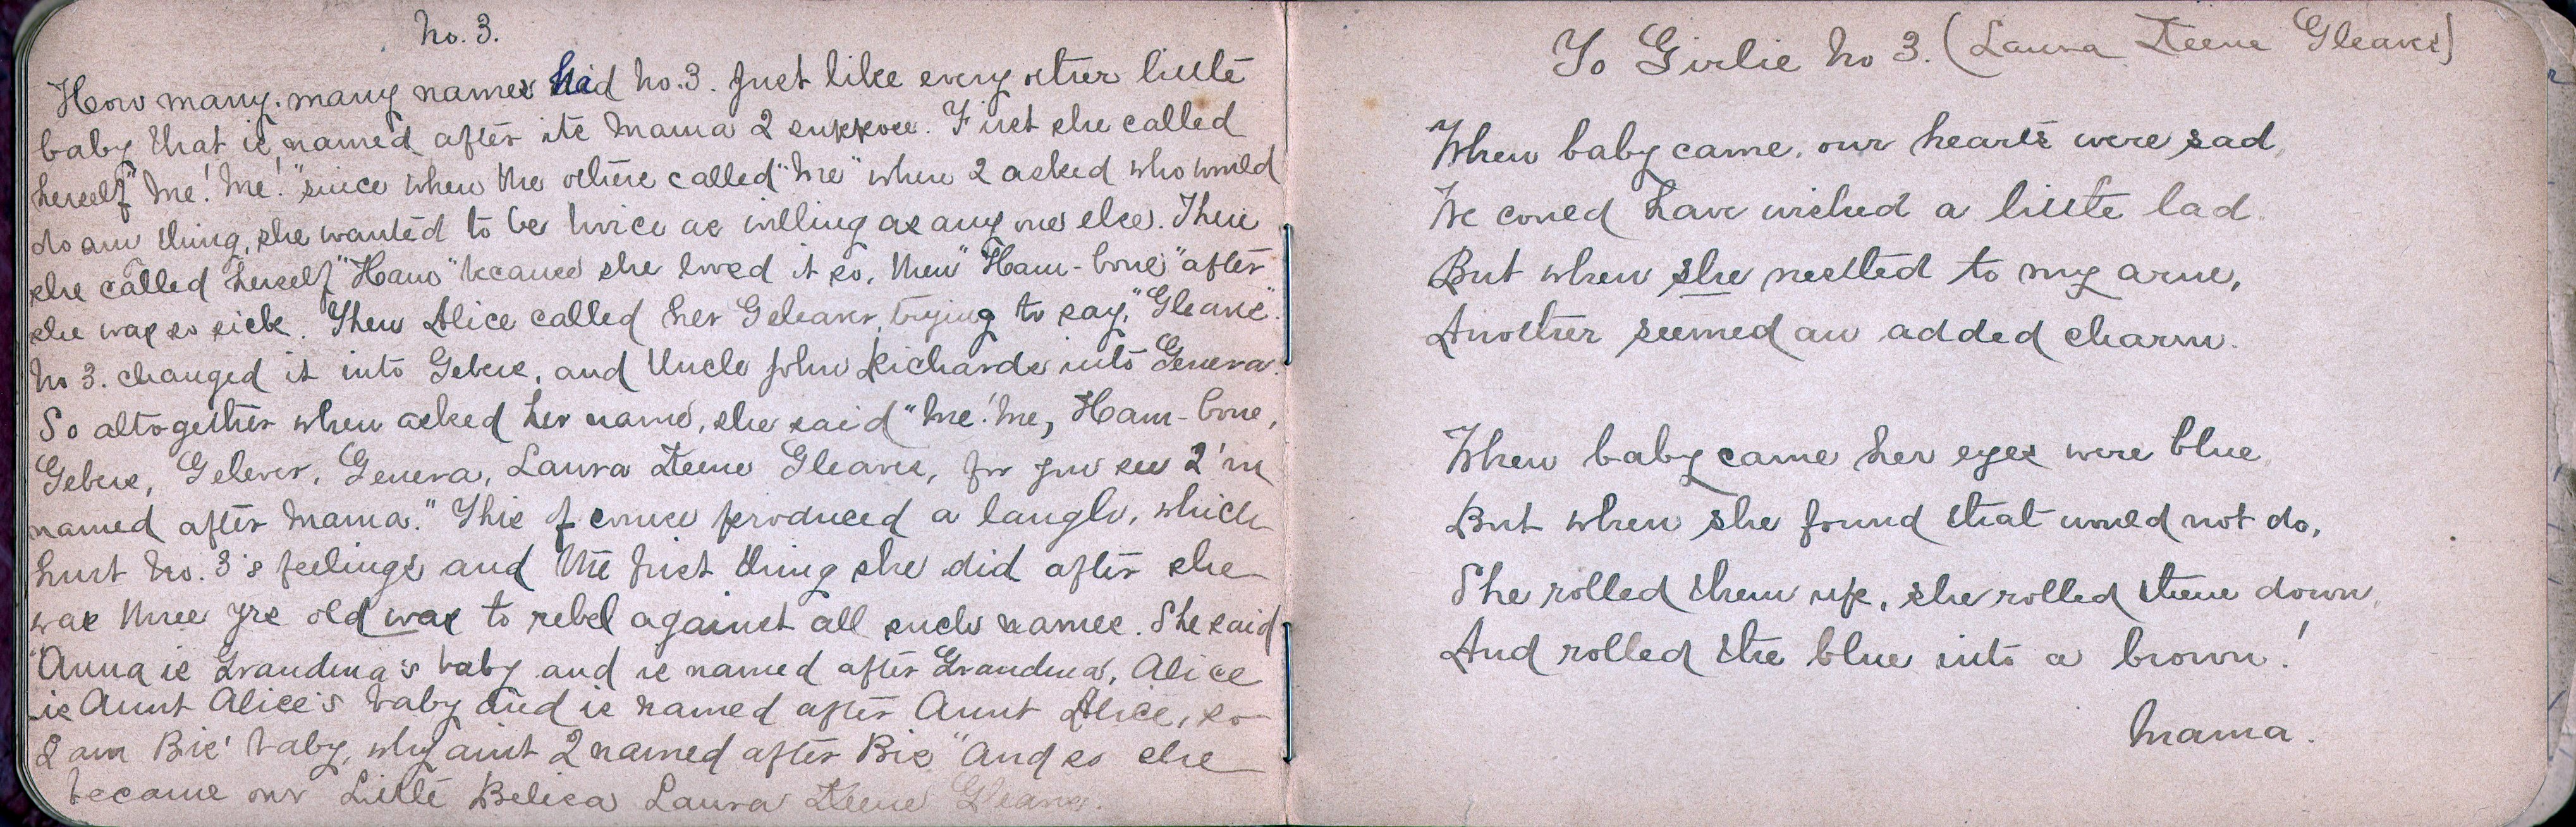 No. 3.
How many, many names had No. 3. Just like every other little
baby that is named after its Mama I suppose. First she called
herself "Me! Me!" since when the others called "Me" when I asked who would
do any thing, she wanted to be twice as willing as any one else. Then
she called herself "Ham" because she loved it so, then "Ham-bone" after
she was so sick. Then Alice called her Geleaves, trying to say, "Gleaves".
No 3. changed it into Gebese, and Uncle John Richards into Geneva.
So altogether when asked her name, she said "Me! Me, Ham-bone,
Gebese, Geleves, Geneva, Laura Steene Gleaves, for you see I'm
named after Mama." This of course produced a laugh, which
hurt No. 3's feelings and the first thing she did after she
was three yrs old was to rebel against all such names. She said
"Anna is Grandma's baby and is named after Grandma, Alice
is Aunt Alice's baby and is named after Aunt Alice, so
I am Bis' baby, why aint I named after Bis" And so she
became our Little Belisa Laura Steene Gleaves.
To Girlie No 3. (Laura Steene Gleaves)
When baby came, our hearts were sad,
We could have wished a little lad.
But when she nestled to my arm,
Another seemed an added charm.
When baby came her eyes were blue,
But when she found that would not do,
She rolled them up, she rolled them down,
And rolled the blue into a brown!
Mama.